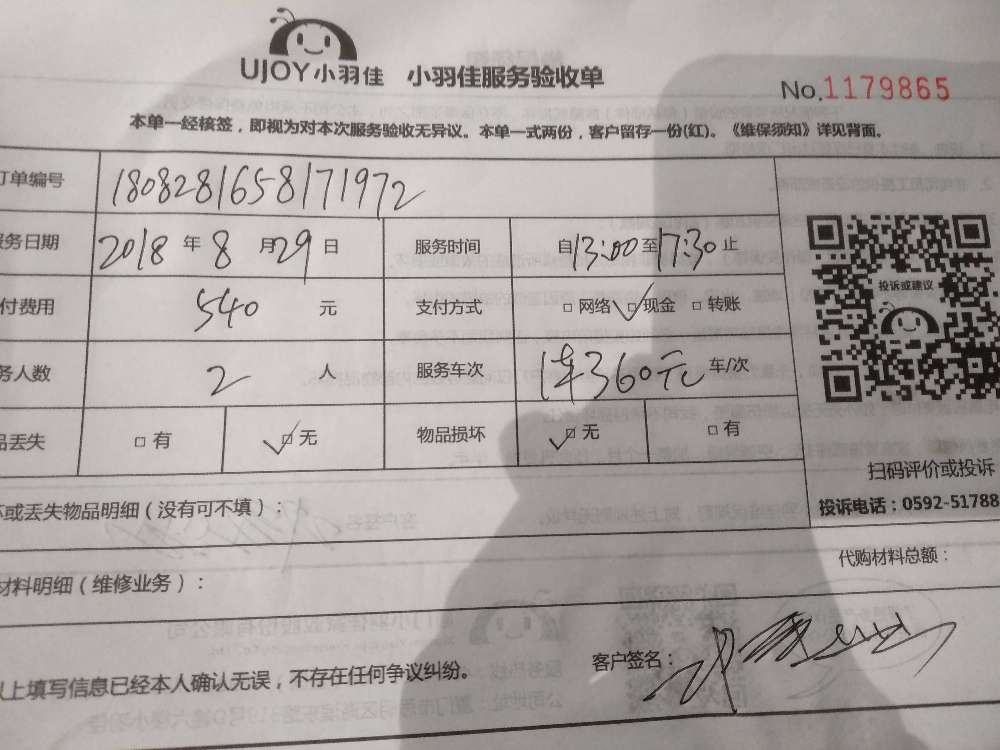 UJOY小羽佳 小羽佳服务验收单
No.1179865
本单一经核签，即视为对本次服务验收无异议。本单一式两份，客户留存一份(红)。《维保须知》详见背面。
订单编号 1808281658171972
服务日期 2018 年 8 月 29 日 服务时间 自13:00至17:30止
付费用 540 元 支付方式 □网络 ✓□现金 □转账
务人数 2 人 服务车次 360元 车/次
品丢失 □有 ✓□无 物品损坏 ✓□无 □有
投诉或建议
扫码评价或投诉
投诉电话：0592-51788
坏或丢失物品明细（没有可不填）：
材料明细（维修业务）： 代购材料总额：
以上填写信息已经本人确认无误，不存在任何争议纠纷。 客户签名：